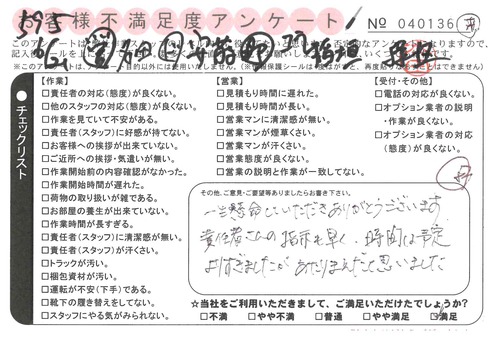 お客様不満足度アンケート
No 040136
595
チェックリスト
【作業】
□責任者の対応(態度)が良くない。
□他のスタッフの対応(態度)が良くない。
□作業を見ていて不安がある。
□責任者(スタッフ)に好感が持てない。
□お客様への挨拶が出来ていない。
□ご近所への挨拶・気遣いが無い。
□作業開始前の内容確認がなかった。
□作業開始時間が遅れた。
□荷物の取り扱いが雑である。
□お部屋の養生が出来ていない。
□作業時間が長すぎる。
□責任者(スタッフ)に清潔感が無い。
□責任者(スタッフ)が汗くさい。
□トラックが汚い。
□梱包資材が汚い。
□運転が不安(下手)である。
□靴下の履き替えをしてない。
□スタッフにやる気がみられない。
【営業】
□見積もり時間に遅れた。
□見積もり時間が長い。
□営業マンに清潔感が無い。
□営業マンが煙草くさい。
□営業マンが汗くさい。
□営業態度が良くない。
□営業の説明と作業が一致してない。
【受付・その他】
□電話の対応が良くない。
□オプション業者の説明
・作業が良くない。
□オプション業者の対応
(態度)が良くない。
その他、ご意見・ご要望等ありましたらお書き下さい。
一生懸命していただきありがとうございます
責任者さんの指示も早く、時間は予定
よりすぎましたが あたりまえだと思いました
☆当社をご利用いただきまして、ご満足いただけたでしょうか?
□不満 □やや不満 □普通 □やや満足 ☑満足